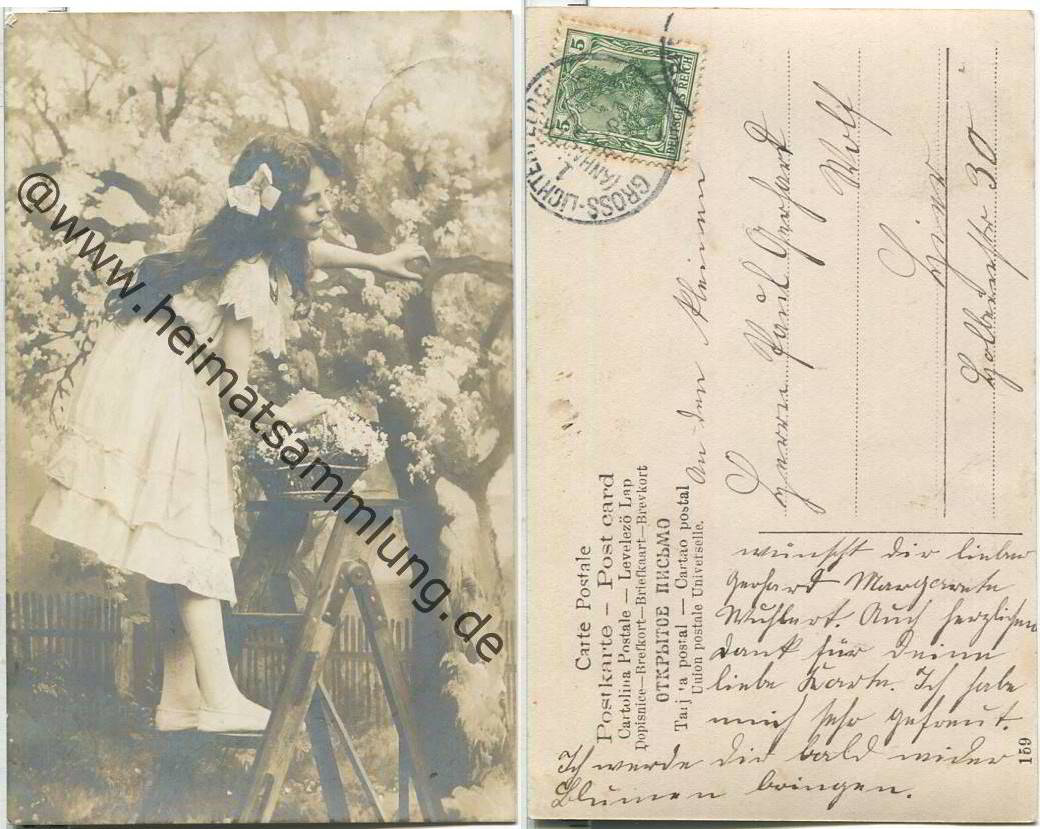 @www.heimatsammlung.de
DEUTSCHES REICH
5
5
GROSS-LICHTERFELDE
(ANHALT.
1
Carte Postale
Postkarte – Post card
Cartolina Postale — Levelező Lap
Dopisnice—Brefkort—Briefkaart—Brevkort
ОТКРЫТОЕ ПИСЬМО
Tarjeta postal — Cartao postal
Union postale Universelle.
An den kleinen
Herrn Paul Gerhard
Wolf
Hier
Holbeinstr. 30
wünscht dir lieber
Gerhard Margarete
Wuhlert. Auch herzlichen
Dank für deine
liebe Karte. Ich habe
mich sehr gefreut.
Ich werde dir bald wieder
Blumen bringen.
159